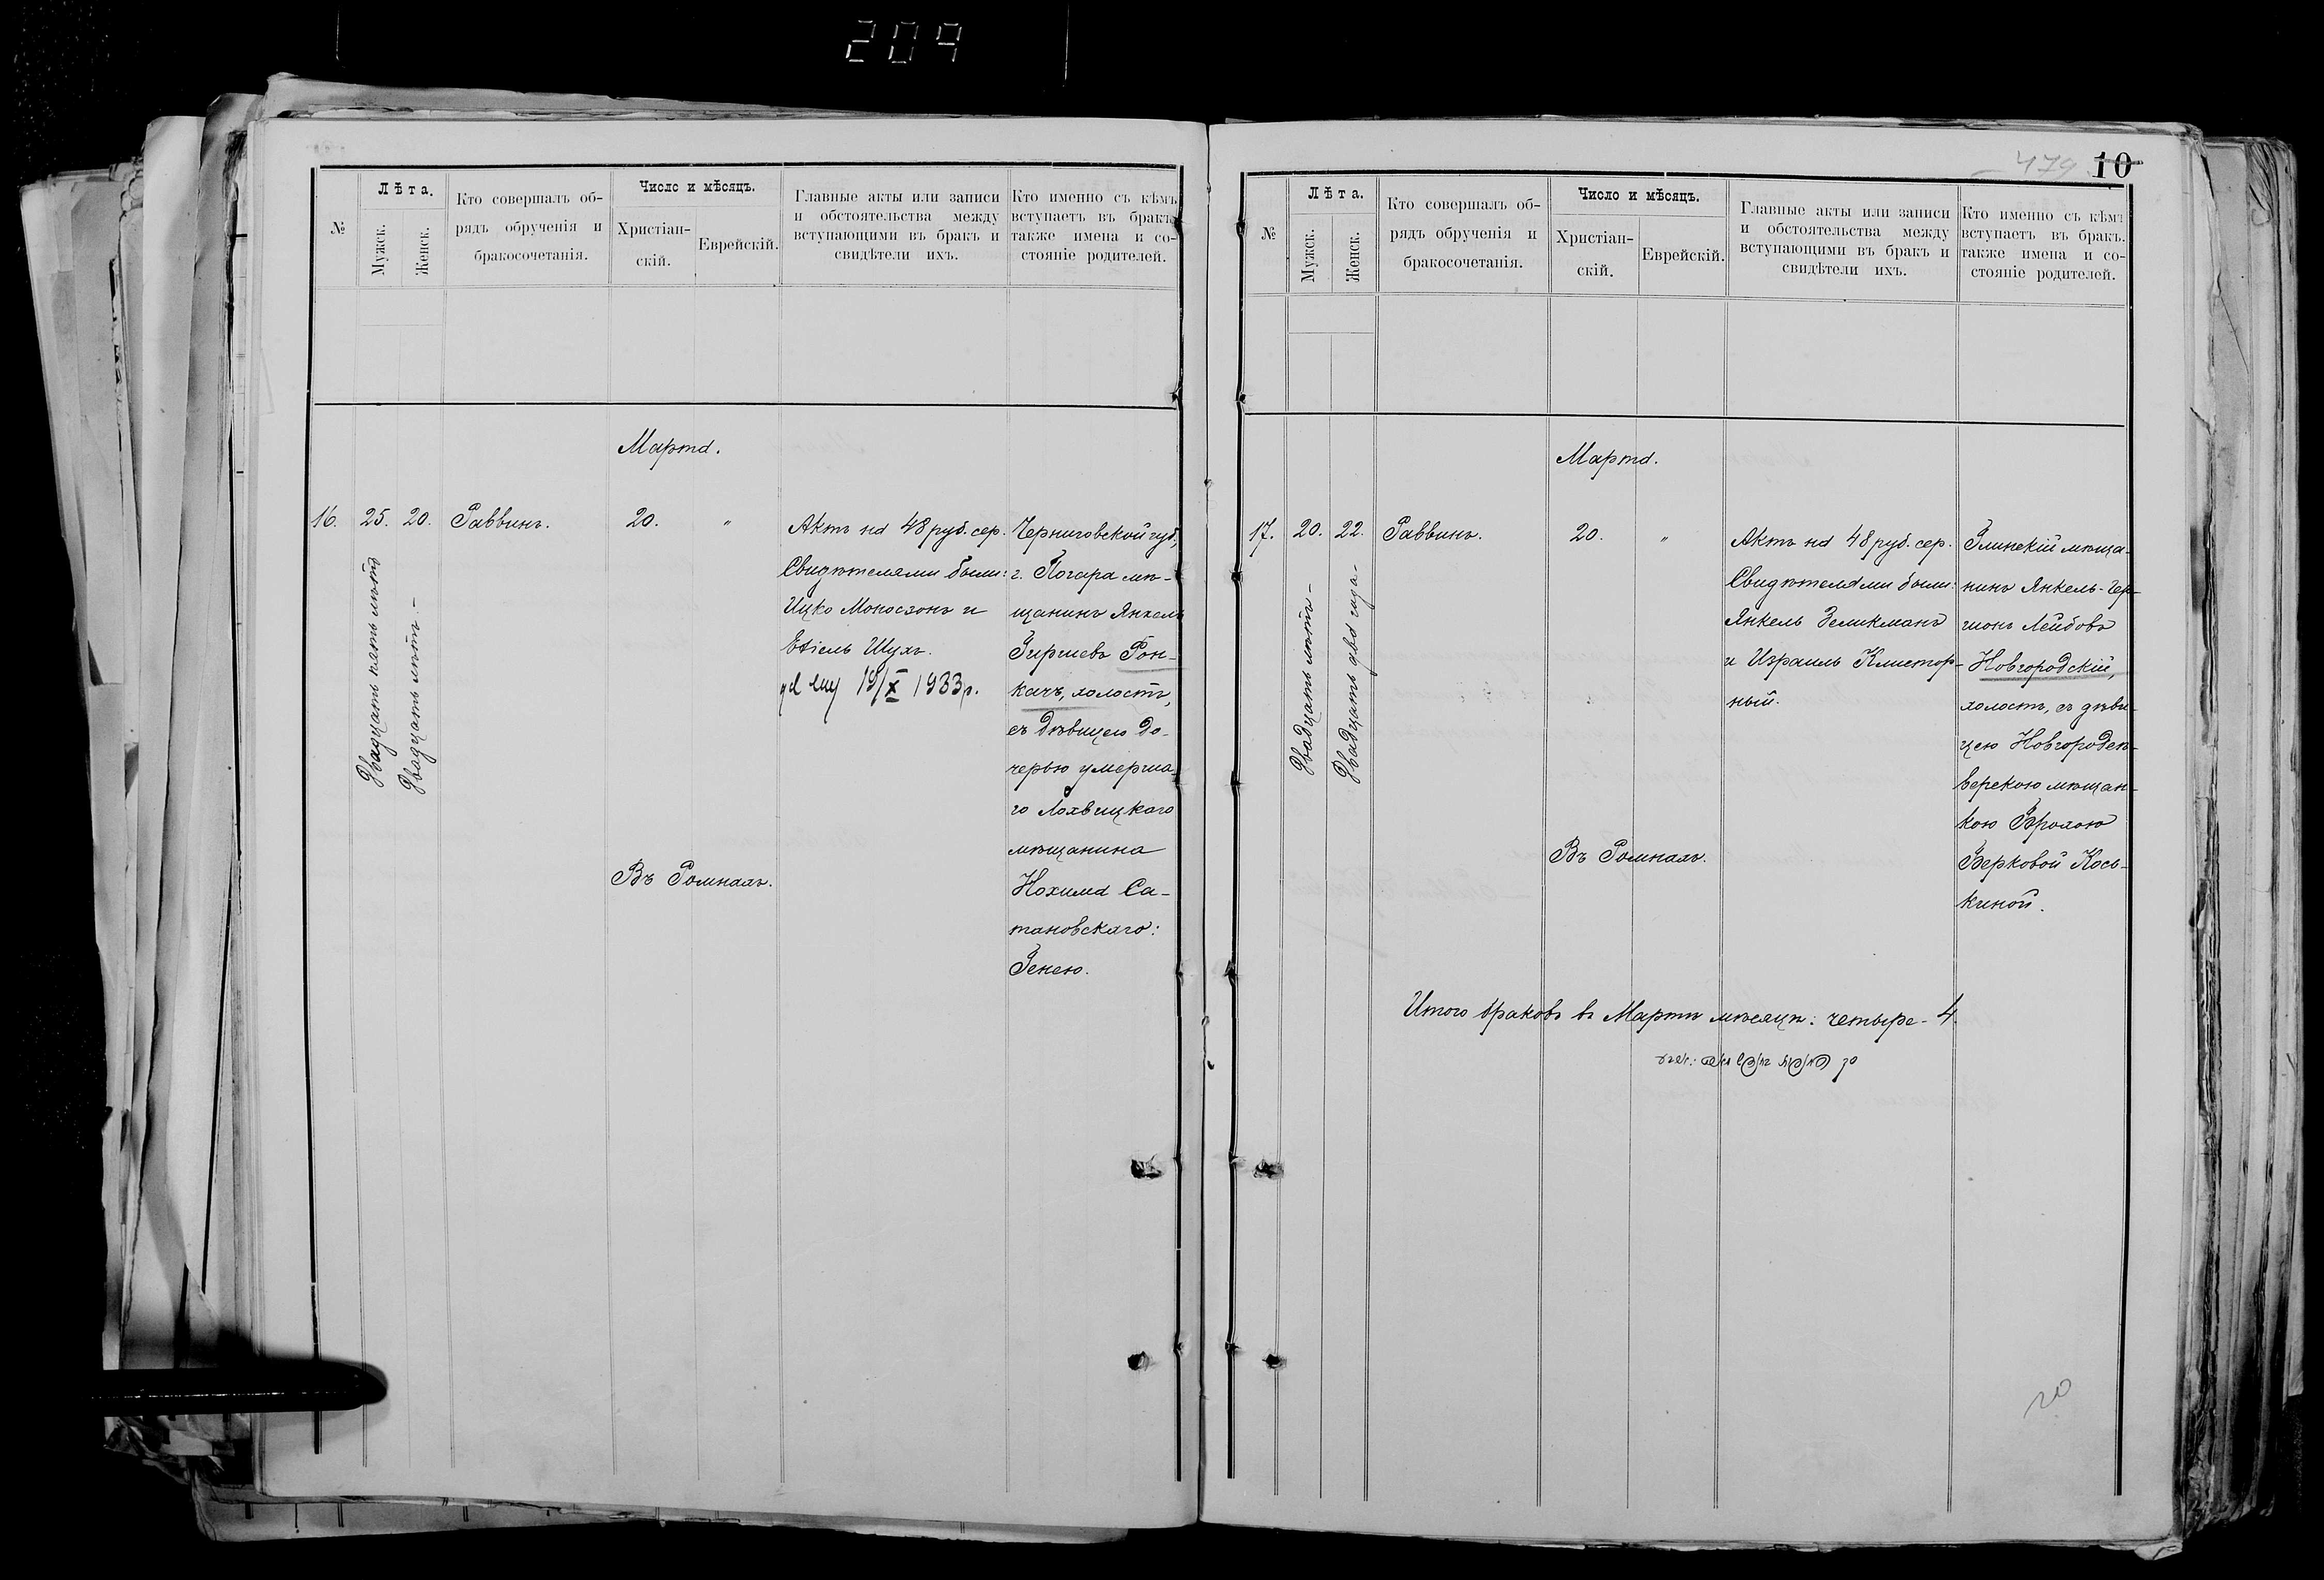 209
№
Лѣта.
Мужск.
Женск.
Кто совершалъ об-
рядъ обрученія и
бракосочетанія.
Число и мѣсяцъ.
Христіан-
скій.
Еврейскій.
Главные акты или записи
и обстоятельства между
вступающими въ бракъ и
свидѣтели ихъ.
Кто именно съ кѣмъ
вступаетъ въ бракъ,
также имена и со-
стояніе родителей.
Марта.
16.
25.
20.
Двадцать пять лѣтъ
Двадцать лѣтъ -
Раввинъ.
20.
"
Въ Ромнахъ.
Актъ на 48 руб. сер.
Свидѣтелями были:
Ицко Моносзонъ и
Ехіель Шухъ.
19/X 1933 р.
Черниговской губ.,
г. Погара мѣ-
щанинъ Янкель
Гиршевъ Рон-
качъ, холостъ,
съ дѣвицею до-
черью умерша-
го Лохвицкаго
мѣщанина
Нохима Са-
тановскаго:
Генею.
479
10
№
Лѣта.
Мужск.
Женск.
Кто совершалъ об-
рядъ обрученія и
бракосочетанія.
Число и мѣсяцъ.
Христіан-
скій.
Еврейскій.
Главные акты или записи
и обстоятельства между
вступающими въ бракъ и
свидѣтели ихъ.
Кто именно съ кѣмъ
вступаетъ въ бракъ.
также имена и со-
стояніе родителей.
Марта.
17.
20.
22.
Двадцать лѣтъ -
Двадцать два года -
Раввинъ.
20.
"
Въ Ромнахъ.
Актъ на 48 руб. сер.
Свидѣтелями были:
Янкель Зеликманъ
и Израиль Клистор-
ный.
Глинскій мѣща-
нинъ Янкель-Гер-
шонъ Лейбовъ
Новгородскій,
холостъ, съ дѣви-
цею Новгородсѣ-
верскою мѣщан-
кою Фрохою
Берковой Кось-
киной.
Итого браковъ въ Мартѣ мѣсяцѣ: четыре - 4.
20